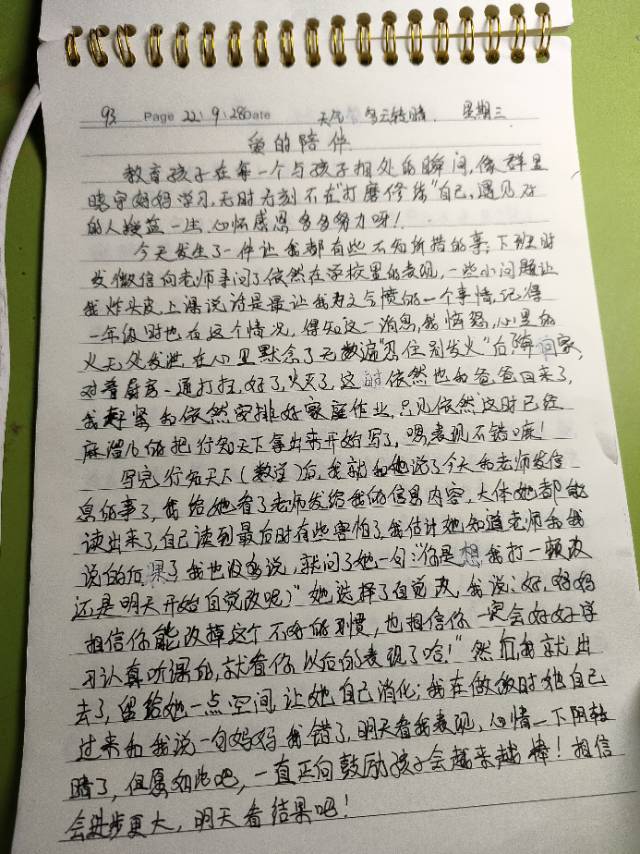 93 Page 22.9.28 Date 天气 多云转晴. 星期三.
爱的陪伴
教育孩子在每一个与孩子相处的瞬间,像群里
晓宇妈妈学习,无时无刻不在"打磨修炼"自己,遇见对
的人受益一生,心怀感恩多多努力呀!
今天发生了一件让我都有些不知所措的事;下班时
发微信向老师询问了依然在学校里的表现,一些小问题让
我炸头皮,上课说话是最让我为之气愤的一个事情,记得
一年级时也有这个情况,得知这一消息,我恼怒,心里的
火无处发泄,在心里默念了无数遍"忍住别发火"后,回家,
对着厨房一通打扫,好了,火灭了,这时依然也和爸爸回来了,
我赶紧和依然安排好家庭作业,只见依然这时已经
麻溜儿的把行知天下拿出来开始写了,嗯,表现不错哦!
写完行知天下(数学)后,我就和她说了今天和老师发信
息的事了,我给她看了老师发给我的信息内容,大体她都能
读出来了,自己读到最后时有些害怕了,我估计她知道老师和我
说的后果了,我也没多说,就问了她一句:"你是想我打一顿改
还是明天开始自觉改呢?"她选择了自觉改,我说:"好,妈妈
相信你能改掉这个不好的习惯,也相信你一定会好好学
习认真听课的,就看你以后的表现了哈!"然后我就出
去了,留给她一点空间,让她自己消化;我在做饭时她自己
过来和我说一句妈妈我错了,明天看我表现,心情一下阴转
晴了,但愿如此吧,一直正向鼓励孩子会越来越棒!相信
会进步更大,明天看结果吧!